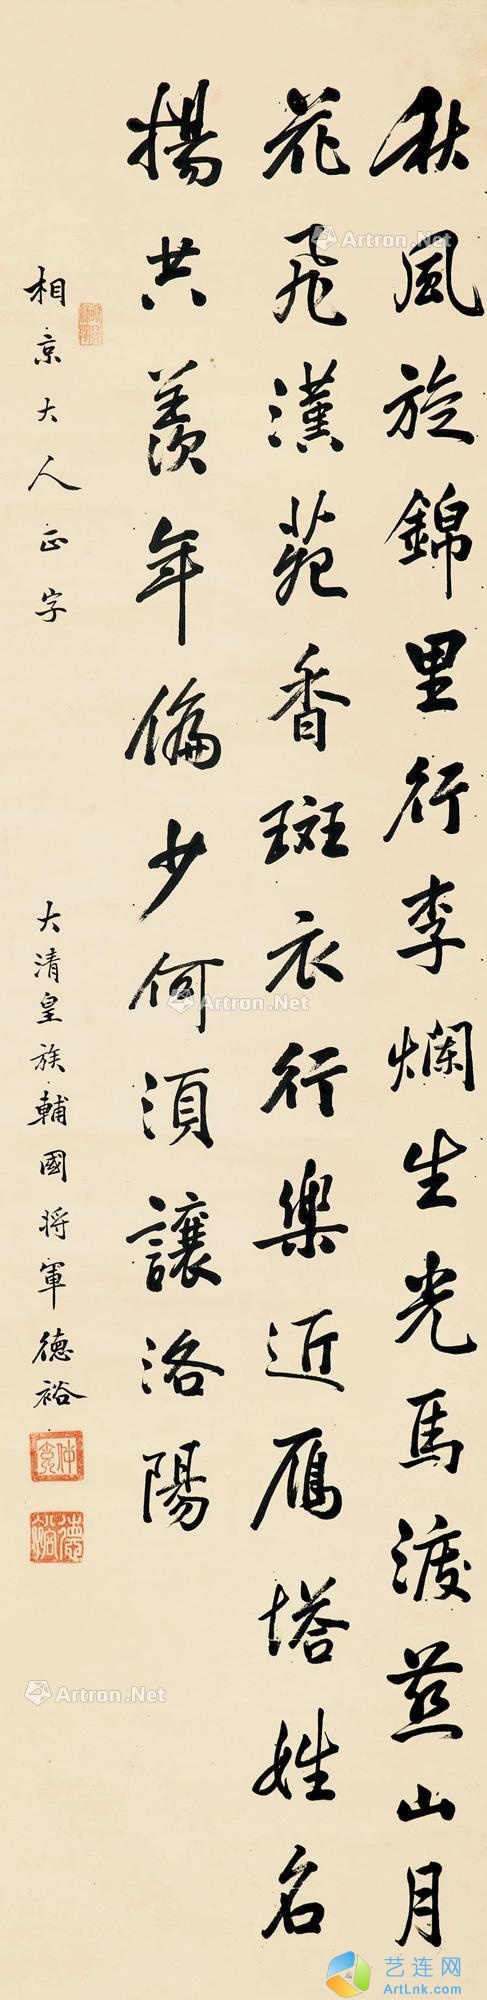 秋風旋錦里行李爛生光馬渡燕山月
花飛漢苑香斑衣行樂近雁塔姓名
揚共羨年偏少何須讓洛陽
相京大人正字
大清皇族輔國将軍德裕
德裕
Artron.Net
Artron.Net
Artron.Net
Artron.Net
艺连网
ArtLnk.com